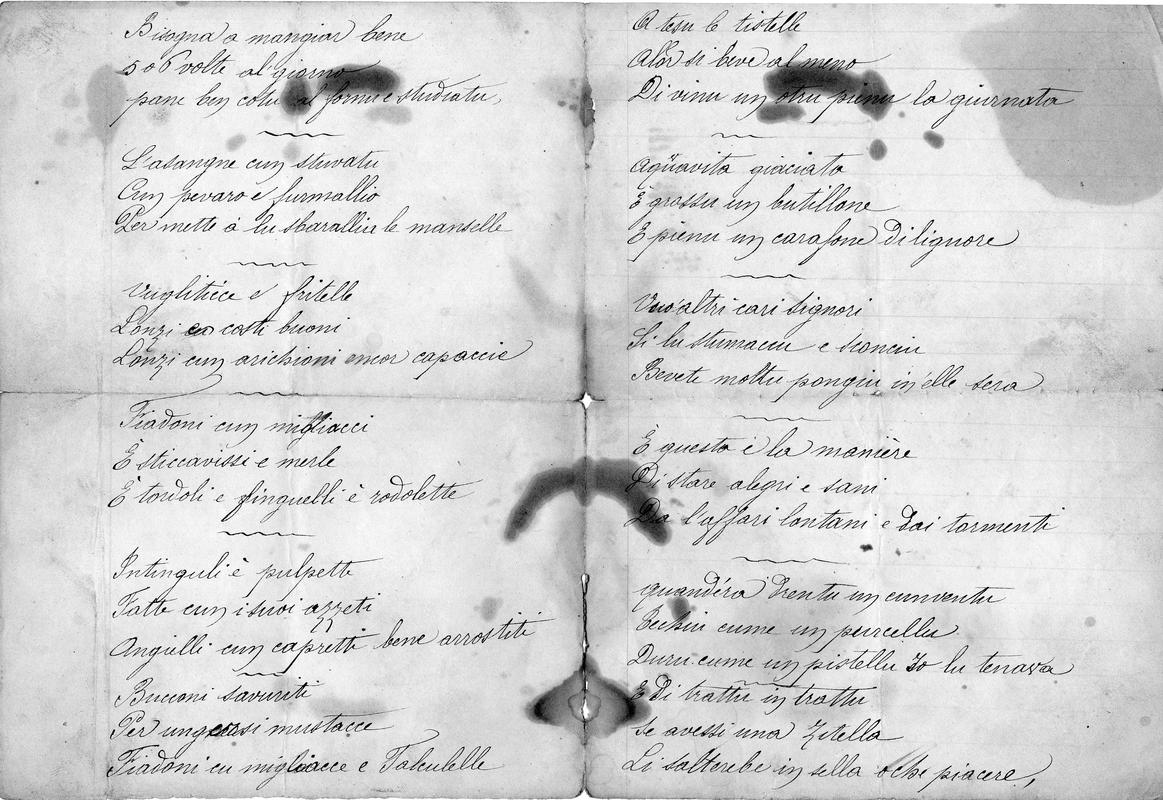 Bisogna a mangiar bene
5 o 6 volte al giorno
pane ben cotu al fornu e studiatu,
L'asangne cun stuvatu
Cun pevaro e furmallio
Per mette a lu sbaralliu le manselle
Vugliticce e fritelle
Lonzi co costi buoni
Lonzi cun orichioni encor capaccie
Fiadoni cun migliacci
E sticcavissi e merle
E tordoli e finguelli è rodolette
Intinguli è pulpette
Fatte cun i suoi azzeti
Angielli cun capretti bene arrostiti
Bucconi savuriti
Per ungersi mustacce
Fiadoni cu migliacce e Talculelle
A tesu le tistelle
Alor si beve al meno
Di vinu un otru pienu la giurnata
Aqüavita giaciata
È grossu un butillone
E pienu un carafone di lignore
Vuo altri cari signori
Si lu stumaccu e sconciu
Bevete moltu pongiu in'elle sera
È questa è la manière
Di stare alegri e sani
Da l'affari lontani e dai tormenti
quand'éra drentu un cunventu
Techiu cume un purcellu
Duru cume un pistellu Io lu tenava
E Di trattu in trattu
Se avessi una Zitella
Li salterebe in sella o che piacere,